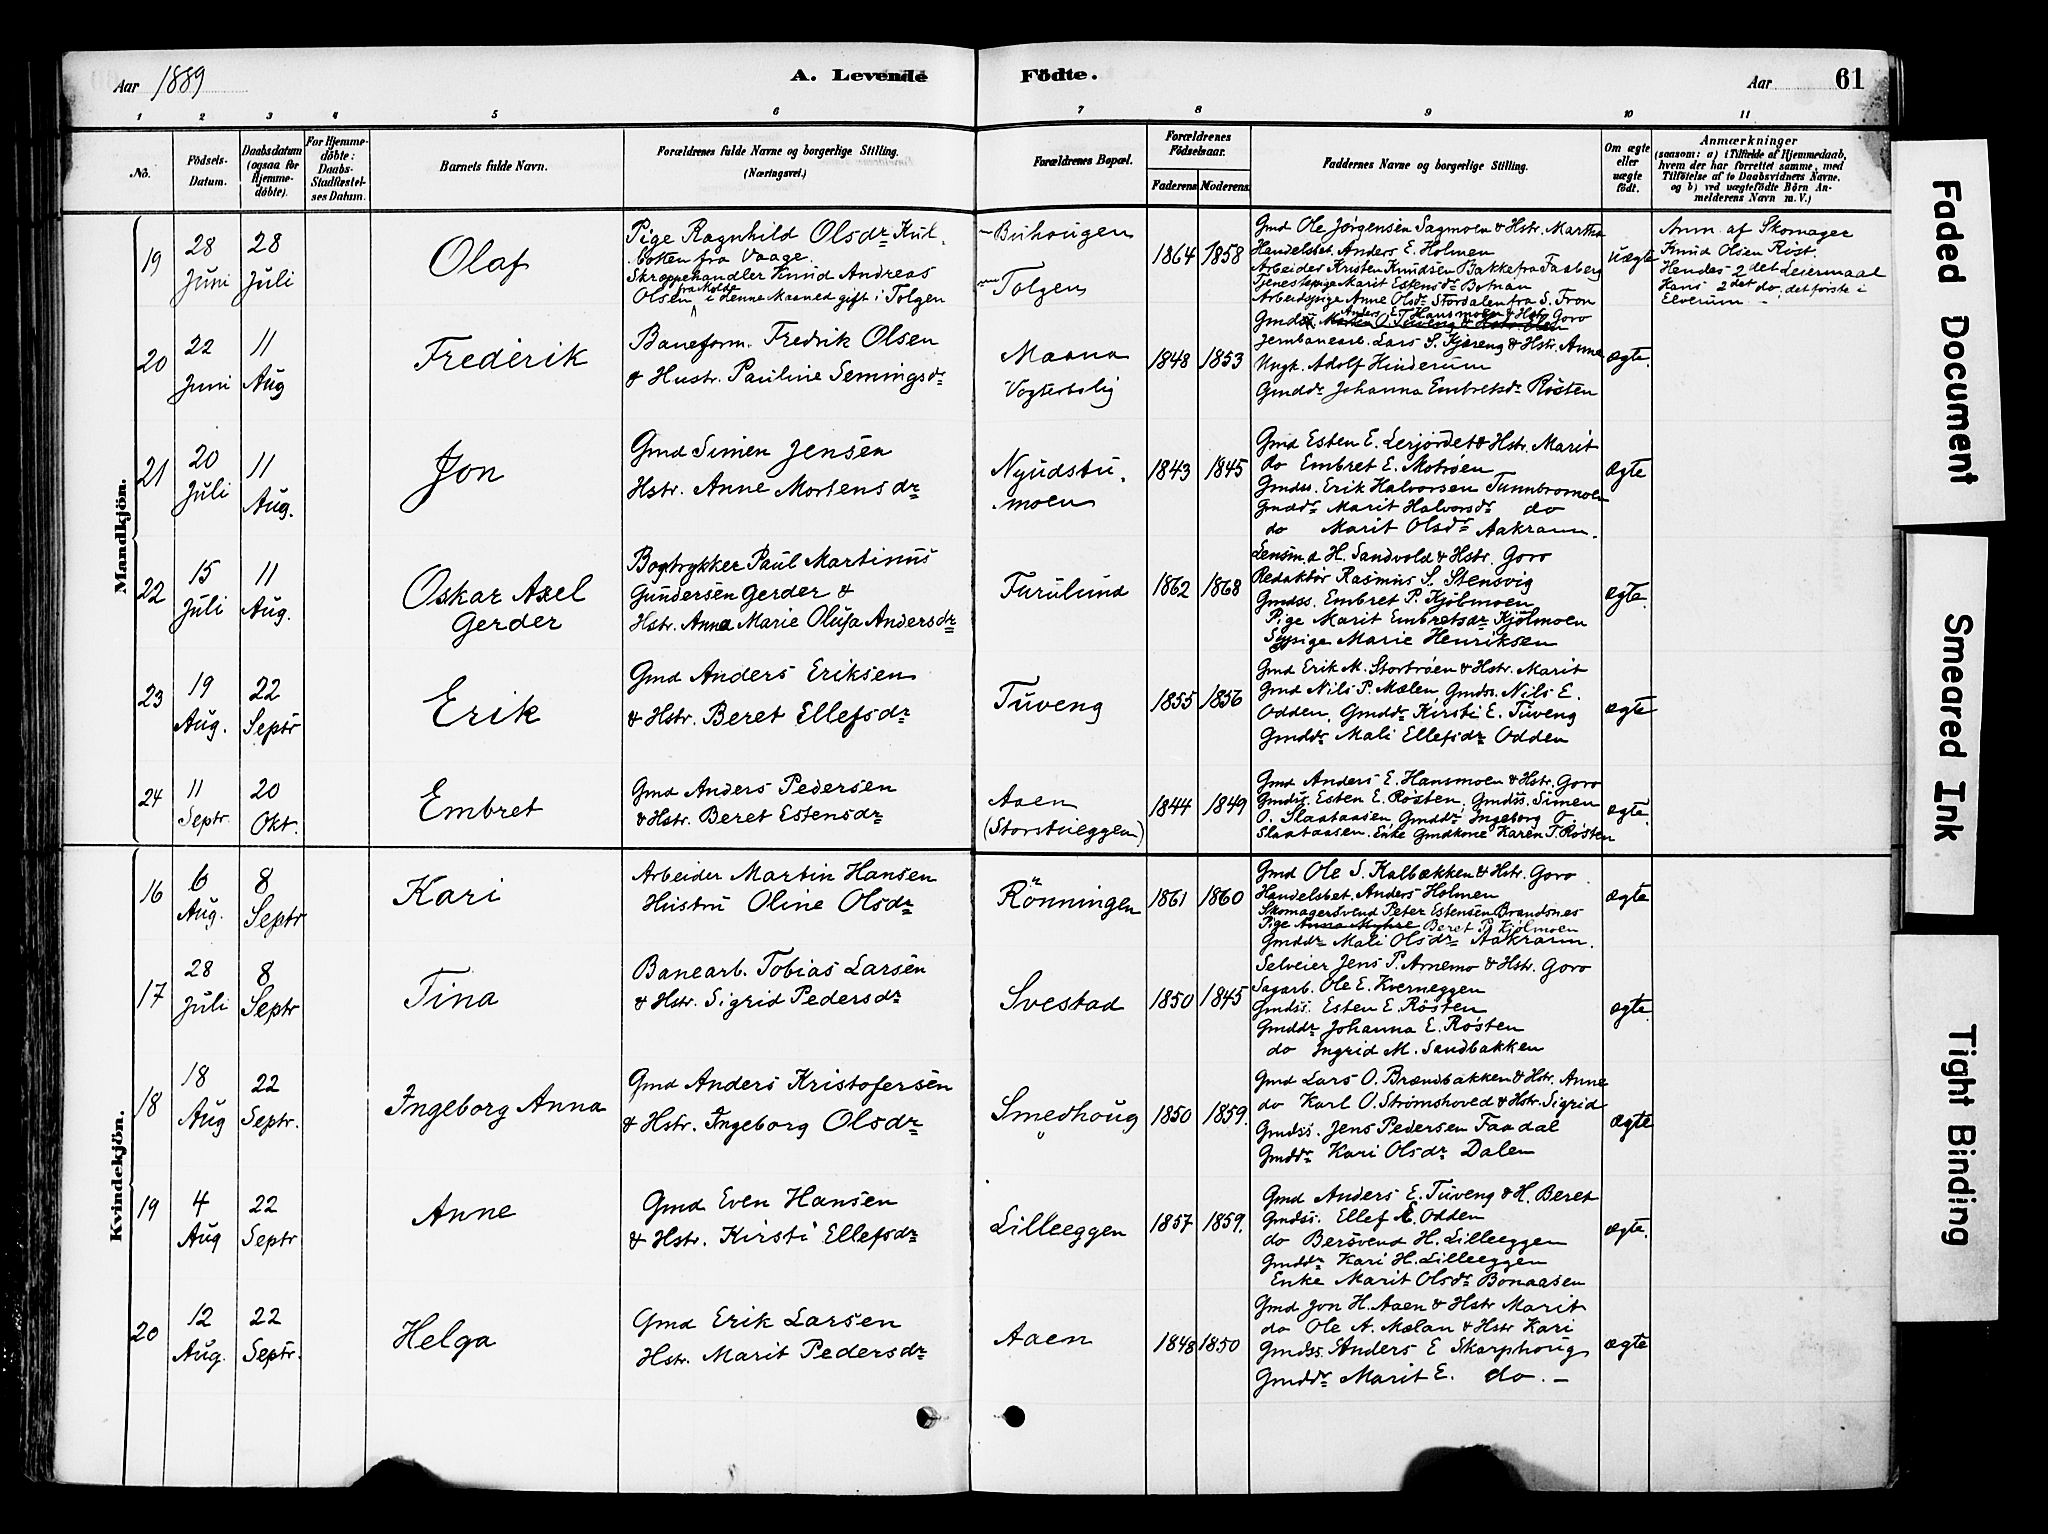 Aar 1889
A. Levende Födte.
Aar 61
1 2 3 4 5 6 7 8 9 10 11
No.
Födsels-
Datum.
Daabsdatum
(ogsaa for
Hjemme-
döbte).
For Hjemme-
döbte:
Daabs-
Stadfæstel-
ses Datum.
Barnets fulde Navn.
Forældrenes fulde Navne og borgerlige Stilling.
(Næringsvei.)
Forældrenes Bopæl.
Forældrenes
Födselsaar.
Faderens Moderens
Faddernes Navne og borgerlige Stilling.
Om ægte
eller
uægte
födt.
Anmærkninger
(saasom: a) i Tilfælde af Hjemmedaab,
hvem der har forrettet samme, med
Tilföielse af to Daabsvidners Navne.
og b) ved uægtefödte Börn An-
melderens Navn m. V.)
Mandkjön.
19
28
Juni
28
Juli
Olaf
Pige Ragnhild Olsdr Kul-
botten fra Vaage.
Skræppehandler Knud Andreas
fra Molde
Olsen i denne Maaned gift i Tolgen
Buhougen
Tolgen
1864 1858
Gmd Ole Jørgensen Sagmoen & Hstr. Martha
Handelsbet. Anders E. Holmen
Arbeider Kristen Knudsen Bakke fra Faaberg
Tjenestepige Marit Estensdr Botnan
Arbeidspige Anne Olsdr Stordalen fra S. Fron
uægte
Anm. af Skomager
Knud Olsen Røst.
Hendes 2det Leiermaal
Hans 2det do, det første i
Elverum
20
22
Juni
11
Aug
Frederik
Baneform. Fredrik Olsen
& Hustr. Pauline Semingsdr
Maana
Vogterbolig
1848 1853
Anders E. Hansmoen & Hstr Goro
Gmdss Morten O. Tuveng & Hstr Olea
Jernbanearb. Lars S. Kjæreng & Hstr. Anna
Ungk. Adolf Hinderum
Gmddr Johanna Embretsdr Røsten
ægte.
21
20
Juli
11
Aug.
Jon
Gmd Simen Jensen
Hstr. Anne Mortensdr
Nyudstu-
moen
1843 1845
Gmd Esten E. Lerjordet & Hstr. Marit
do Embret E. Motrøen
Gmdss. Erik Halvorsen Tunnbromoen
Gmddr Marit Halvorsdr do
do Marit Olsdr Aakrann.
ægte
22
15
Juli
11
Aug.
Oskar Axel
Gerder
Bogtrykker Paul Martinus
Gundersen Gerder &
Hstr. Anna Marie Olufa Andersdr
Furulund
1862 1868
Lensm.d H. Sandvold & Hstr. Goro
Redaktör Rasmus S. Stensvig
Gmdss. Embret P. Kjölmoen
Pige Marit Embretsdr Kjölmoen
Sypige Marie Henriksen
ægte.
23
19
Aug.
22
Septr
Erik
Gmd Anders Eriksen
& Hstr. Beret Ellefsdr
Tuveng
1855 1856
Gmd Erik M. Stortrøen & Hstr. Marit
Gmd Nils P. Mælen, Gmdss. Nils E.
Odden, Gmddr Kirsti E. Tuveng
Gmddr Mali Ellefsdr Odden
ægte
24
11
Septr
20
Okt.
Embret
Gmd Anders Pedersen
& Hstr. Beret Estensdr
Aaen
(Storstueggen)
1844 1849
Gmd Anders E. Hansmoen & Hstr. Goro
Gmdss. Esten E. Røsten, Gmdss. Simen
O. Slaataasen, Gmddr Ingeborg O.
Slaataasen. Enke Gmdkone Karen T. Røsten
ægte.
Kvindekjön.
16
6
Aug.
8
Septr
Kari
Arbeider Martin Hansen
Hustru Oline Olsdr
Rönningen
1861 1860
Gmd Ole S. Kalbækken & Hstr. Goro
Handelsbet. Anders Holmen
Skomagersvend Peter Estensen Brandsnes
Pige Anna Myhre Beret P. Kjølmoen
Gmddr Mali Olsdr Aakrann.
ægte
17
28
Juli
8
Septr
Tina
Banearb. Tobias Larsen
& Hstr. Sigrid Pedersdr
Svestad
1850 1845
Selveier Jens P. Arnemo & Hstr. Goro
Sagarb. Ole E. Kverneggen
Gmdss. Esten E. Røsten
Gmddr Johanna E. Røsten
do Ingrid M. Sandbakken
ægte.
18
18
Aug
22
Septr.
Ingeborg Anna
Gmd Anders Kristofersen
& Hstr. Ingeborg Olsdr
Smedhoug
1850 1859.
Gmd Lars O. Brændbakken & Hstr. Anne
do Karl O. Strømshoved & Hstr. Sigrid
Gmdss. Jens Pedersen Faadal
Gmddr Kari Olsdr Dalen
ægte
19
4
Aug
22
Septr
Anne
Gmd Even Hansen
& Hstr. Kirsti Ellefsdr
Lilleeggen
1857 1859.
Gmd Anders E. Tuveng & H. Beret
Gmdss. Ellef E. Odden
do Bersvend H. Lilleeggen
Gmddr Kari H. Lilleeggen
Enke Marit Olsdr Bonaasen
ægte.
20
12
Aug.
22
Septr.
Helga
Gmd Erik Larsen
Hstr. Marit Pedersdr
Aaen
1848 1850
Gmd Jon H. Aaen & Hstr Marit
do Ole A. Mælan & Hstr Kari
Gmdss. Anders E Skarphoug
Gmddr Marit E. do. –
ægte
Faded Document
Smeared Ink
Tight Binding